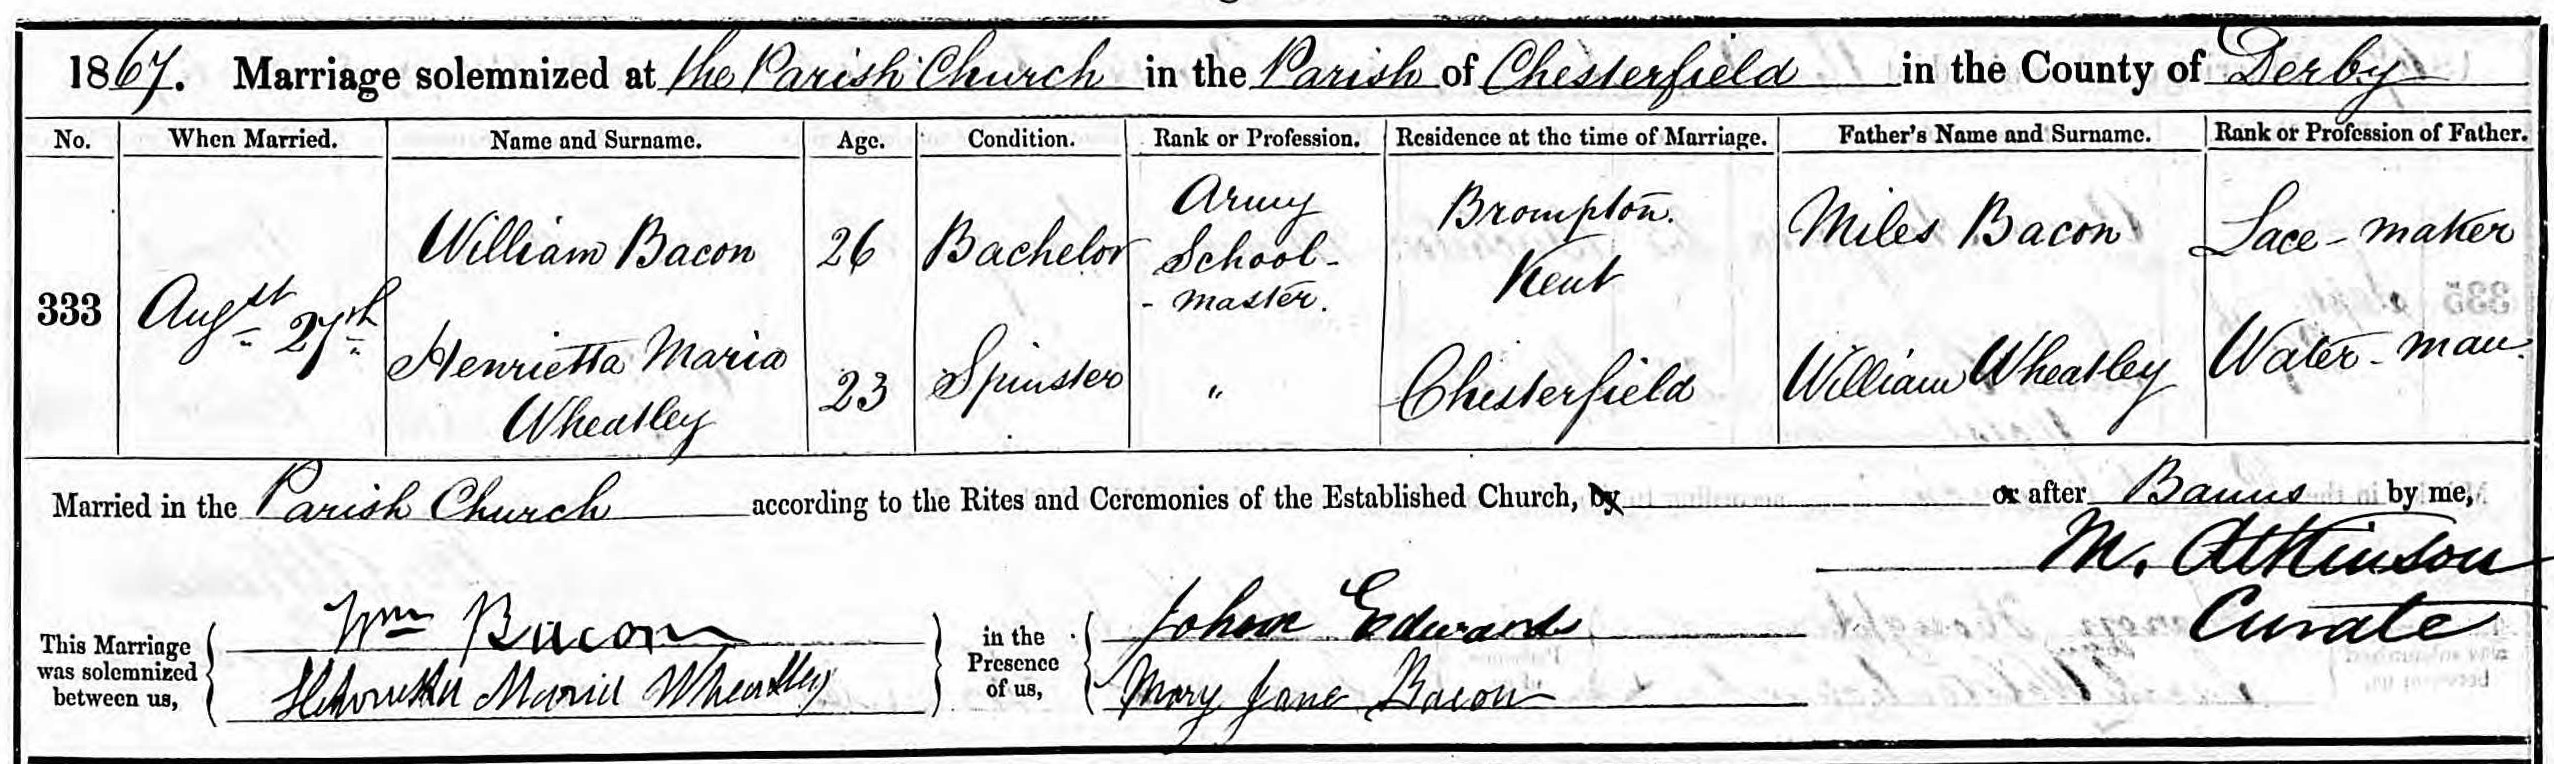 1867. Marriage solemnized at the Parish Church in the Parish of Chesterfield in the County of Derby
No. When Married. Name and Surname. Age. Condition. Rank or Profession. Residence at the time of Marriage. Father's Name and Surname. Rank or Profession of Father.
333 Augst 27th William Bacon 26 Bachelor Army School-master. Brompton. Kent Miles Bacon Lace-maker
Henrietta Maria Wheatley 23 Spinster " Chesterfield William Wheatley Water-man.
Married in the Parish Church according to the Rites and Ceremonies of the Established Church, by or after Banns by me,
M. Atkinson
Curate
This Marriage was solemnized between us, Wm Bacon
Henrietta Maria Wheatley
in the Presence of us, John Edwards
Mary Jane Bacon